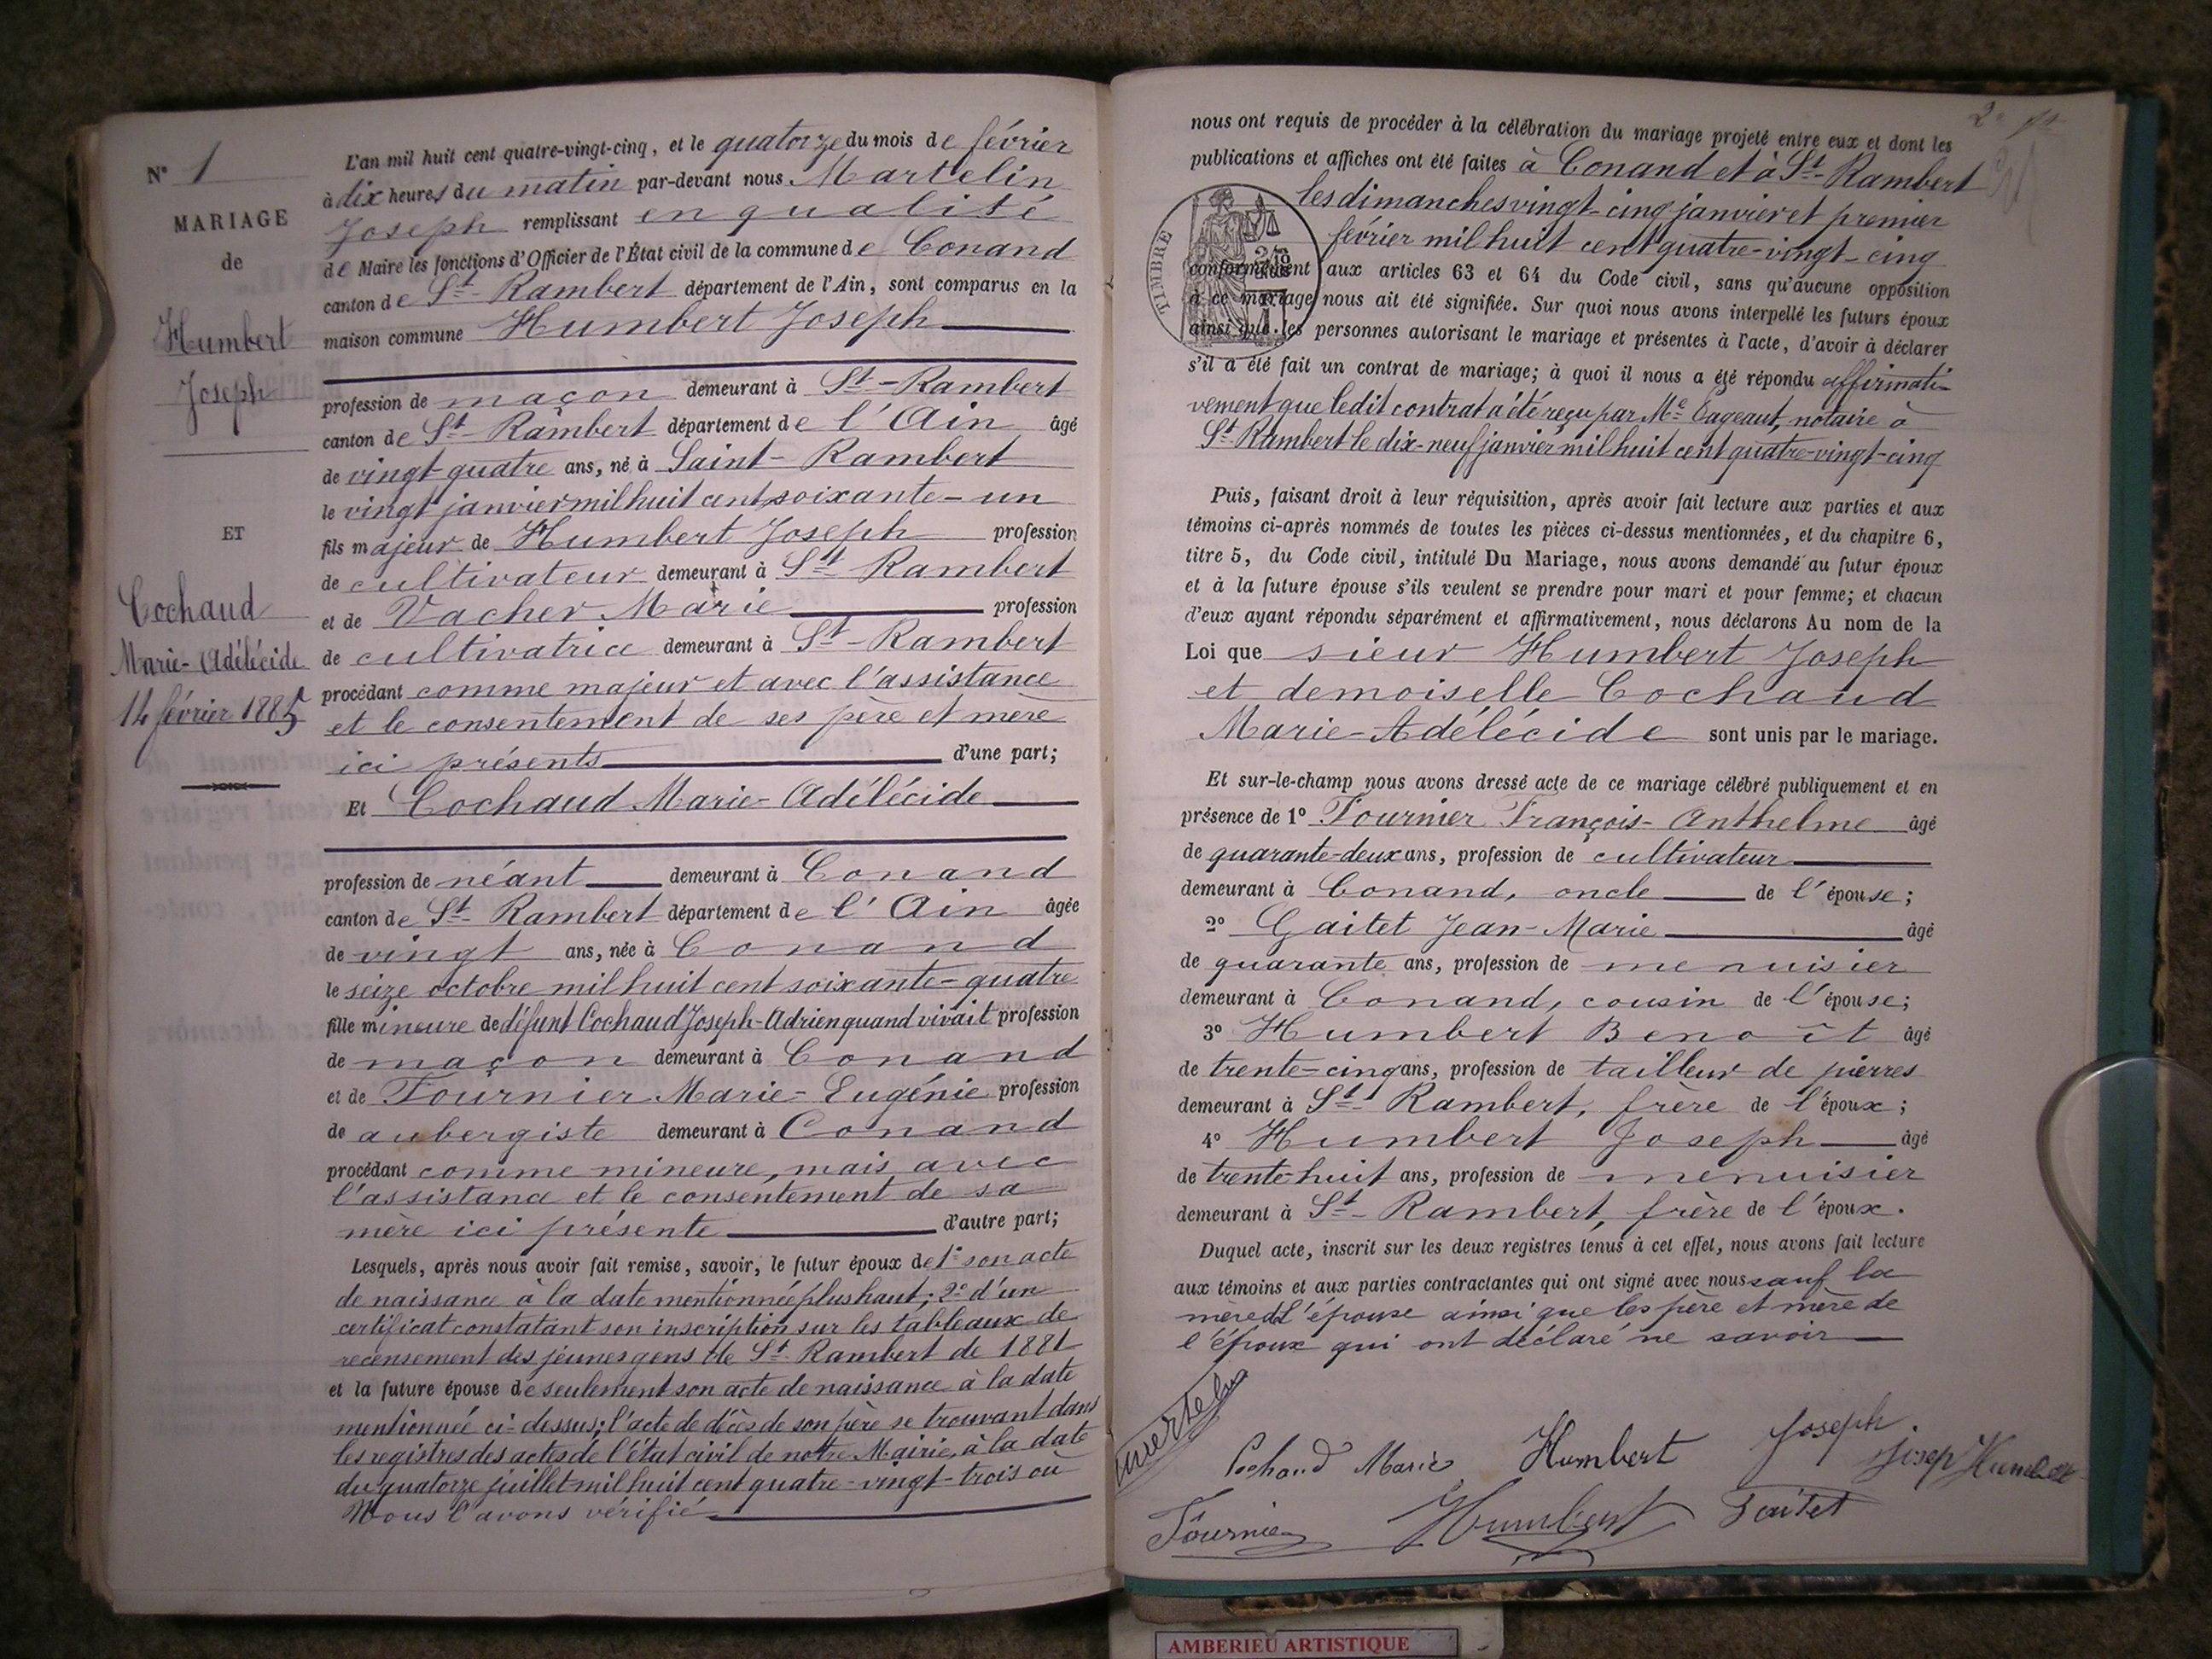 N° 1
MARIAGE
de
Humbert
Joseph
ET
Cochaud
Marie-Adélécide
14 février 1885
L'an mil huit cent quatre-vingt-cinq, et le quatorze du mois de février
à dix heures du matin par-devant nous Martelin
Joseph remplissant en qualité
de Maire les fonctions d'Officier de l'État civil de la commune de Conand
canton de St-Rambert département de l'Ain, sont comparus en la
maison commune Humbert Joseph
profession de maçon demeurant à St-Rambert
canton de St-Rambert département de l'Ain âgé
de vingt-quatre ans, né à Saint-Rambert
le vingt janvier mil huit cent soixante-un
fils majeur de Humbert Joseph profession
de cultivateur demeurant à St Rambert
et de Vacher Marie profession
de cultivatrice demeurant à St-Rambert
procédant comme majeur et avec l'assistance
et le consentement de ses père et mère
ici présents d'une part;
Et Cochaud Marie-Adélécide
profession de néant demeurant à Conand
canton de St-Rambert département de l'Ain âgée
de vingt ans, née à Conand
le seize octobre mil huit cent soixante-quatre
fille mineure de défunt Cochaud Joseph-Adrien quand vivait profession
de maçon demeurant à Conand
et de Fournier Marie-Eugénie profession
de aubergiste demeurant à Conand
procédant comme mineure, mais avec
l'assistance et le consentement de sa
mère ici présente d'autre part;
Lesquels, après nous avoir fait remise, savoir, le futur époux de 1° son acte
de naissance à la date mentionnée plus haut; 2° d'un
certificat constatant son inscription sur les tableaux de
recensement des jeunes gens de St-Rambert de 1881
et la future épouse de seulement son acte de naissance à la date
mentionnée ci-dessus; l'acte de décès de son père se trouvant dans
les registres des actes de l'état civil de notre Mairie, à la date
du quatorze juillet mil huit cent quatre-vingt-trois où
Nous l'avons vérifié
nous ont requis de procéder à la célébration du mariage projeté entre eux et dont les
publications et affiches ont été faites à Conand et à St-Rambert
les dimanches vingt-cinq janvier et premier
février mil huit cent quatre-vingt-cinq
TIMBRE
conformément aux articles 63 et 64 du Code civil, sans qu'aucune opposition
à ce mariage nous ait été signifiée. Sur quoi nous avons interpellé les futurs époux
ainsi que les personnes autorisant le mariage et présentes à l'acte, d'avoir à déclarer
s'il a été fait un contrat de mariage; à quoi il nous a été répondu affirmati-
vement que ledit contrat a été reçu par Me notaire à
St-Rambert le dix-neuf janvier mil huit cent quatre-vingt-cinq
Puis, faisant droit à leur réquisition, après avoir fait lecture aux parties et aux
témoins ci-après nommés de toutes les pièces ci-dessus mentionnées, et du chapitre 6,
titre 5, du Code civil, intitulé Du Mariage, nous avons demandé au futur époux
et à la future épouse s'ils veulent se prendre pour mari et pour femme; et chacun
d'eux ayant répondu séparément et affirmativement, nous déclarons Au nom de la
Loi que sieur Humbert Joseph
et demoiselle Cochaud
Marie-Adélécide sont unis par le mariage.
Et sur-le-champ nous avons dressé acte de ce mariage célébré publiquement et en
présence de 1° Fournier François-Anthelme âgé
de quarante-deux ans, profession de cultivateur
demeurant à Conand, oncle de l'épouse;
2° Gaitet Jean-Marie âgé
de quarante ans, profession de menuisier
demeurant à Conand, cousin de l'épouse;
3° Humbert Benoît âgé
de trente-cinq ans, profession de tailleur de pierres
demeurant à St-Rambert, frère de l'époux;
4° Humbert Joseph âgé
de trente-huit ans, profession de menuisier
demeurant à St-Rambert, frère de l'époux.
Duquel acte, inscrit sur les deux registres tenus à cet effet, nous avons fait lecture
aux témoins et aux parties contractantes qui ont signé avec nous sauf la
mère de l'épouse ainsi que les père et mère de
l'époux qui ont déclaré ne savoir
Cochaud Marie Humbert Joseph
Josep Humbert
Fournier Humbert Gaitet
AMBERIEU ARTISTIQUE